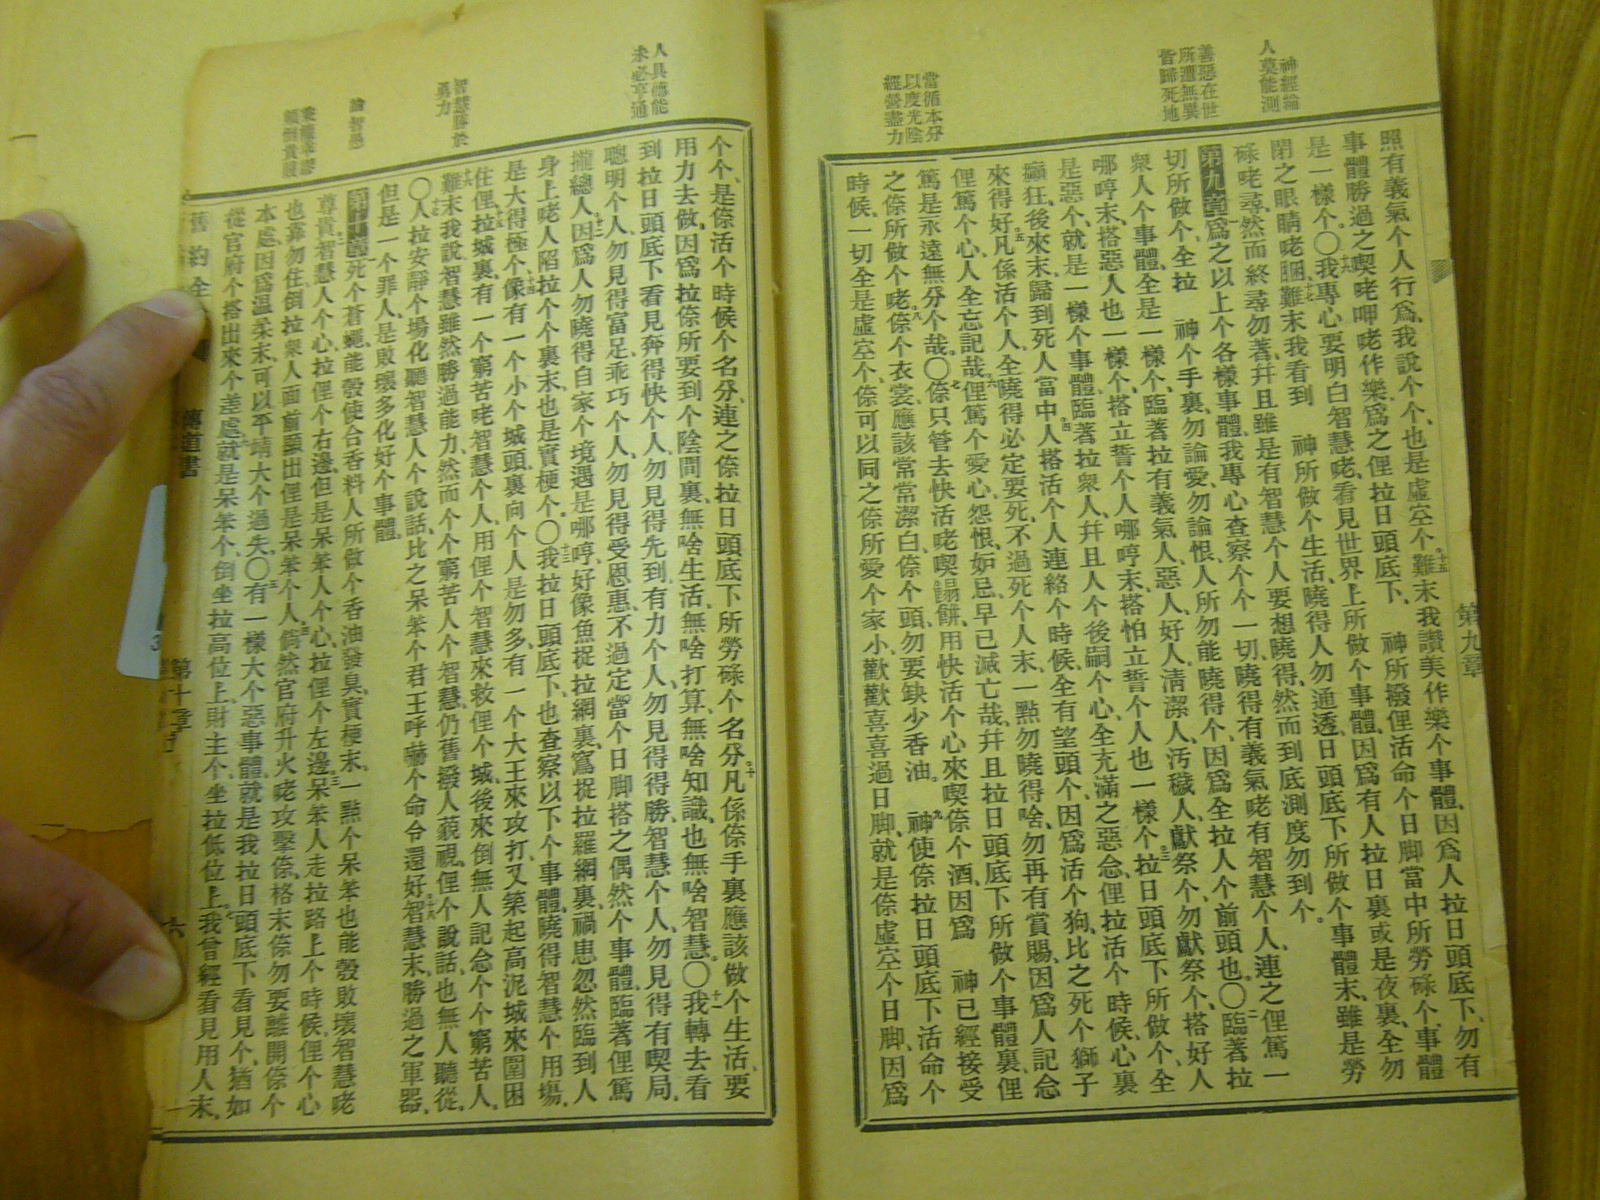 神經綸
人莫能測
善惡在世
所遭無異
皆歸死地
當循本分
以度光陰
經營盡力
第九章
照有義氣个人行爲、我說个个、也是虛空个、十五難末我讚美作樂个事體、因爲人拉日頭底下、勿有
事體勝過之喫咾呷咾作樂、爲之俚拉日頭底下、神所撥俚活命个日脚當中所勞碌个事體
是一樣个、〇十六我專心要明白智慧咾、看見世界上所做个事體、因爲有人拉日裏或是夜裏、全勿
閉之眼睛咾睏、十七難末我看到 神所做个生活、曉得人勿通透、日頭底下所做个事體末、雖是勞
碌咾尋、然而終尋勿著、幷且雖是有智慧个人、要想曉得、然而到底測度勿到个。
第九章 爲之以上个各樣事體、我專心查察个个一切、曉得有義氣咾有智慧个人、連之俚篤一
切所做个、全拉 神个手裏、勿論愛、勿論恨、人所勿能曉得个、因爲全拉人个前頭也、〇二臨著拉
衆人个事體、全是一樣个、臨著拉有義氣人、惡人、好人、淸潔人、汚穢人、獻祭个、勿獻祭个、搭好人
哪哼末、搭惡人也一樣个、搭立誓个人哪哼末、搭怕立誓个人也一樣个、三拉日頭底下所做个、全
是惡个、就是一樣个事體、臨著拉衆人、幷且人个後嗣个心、全充滿之惡念、俚拉活个時候、心裏
癲狂、後來末、歸到死人當中、四人搭活个人連絡个時候、全有望頭个、因爲活个狗、比之死个獅子
來得好、五凡係活个人、全曉得必定要死、不過死个人末、一點勿曉得啥、勿再有賞賜、因爲人記念
俚篤个心、人全忘記哉、六俚篤个愛心、怨恨、妒忌、早已滅亡哉、幷且拉日頭底下所做个事體裏、俚
篤是永遠無分个哉、〇七倷只管去快活咾喫餳餅、用快活个心來喫倷个酒、因爲 神已經接受
之倷所做个咾、八倷个衣裳、應該常常潔白、倷个頭、勿要缺少香油、九神使倷拉日頭底下活命个
時候、一切全是虛空个、倷可以同之倷所愛个家小、歡歡喜喜過日脚、就是倷虛空个日脚、因爲
人具德能
未必亨通
智慧勝於
勇力
論智愚
乘權爭謬
傾倒貴賤
个个、是倷活个時候个名分、連之倷拉日頭底下所勞碌个名分、十凡係倷手裏應該做个生活、要
用力去做、因爲拉倷所要到个陰間裏、無啥生活、無啥打算、無啥知識、也無啥智慧、〇十一我轉去看
到拉日頭底下、看見奔得快个人、勿見得先到、有力个人、勿見得得勝、智慧个人、勿見得有喫局、
聰明个人、勿見得富足、乖巧个人、勿見得受恩惠、不過定當个日脚、搭之偶然个事體、臨著俚篤
攏總人、十二因爲人勿曉得自家个境遇是哪哼、好像魚捉拉網裏、鳥捉拉羅網裏、禍患忽然臨到人
身上咾、人陷拉个个裏末、也是實梗个、〇十三我拉日頭底下、也查察以下个事體、曉得智慧个用塲、
是大得極个、十四像有一个小个城頭、裏向个人是勿多、有一个大王來攻打、又築起高泥城來圍困
住俚、十五拉城裏、有一个窮苦咾智慧个人、用俚个智慧來救俚个城、後來倒無人記念个个窮苦人、
十六難末我說、智慧雖然勝過能力、然而个个窮苦人个智慧、仍舊撥人藐視、俚个說話、也無人聽從、
〇十七人拉安靜个塲化、聽智慧人个說話、比之呆笨个君王、呼嚇个命令還好、十八智慧末、勝過之軍器、
但是一个罪人、是敗壞多化好个事體。
第十章 死个蒼蠅、能彀使合香料人所做个香油發臭、實梗末、一點个呆笨、也能彀敗壞智慧咾
尊貴、二智慧人个心、拉俚个右邊、但是呆笨人个心、拉俚个左邊、三呆笨人走拉路上个時候、俚个心
也靠勿住、倒拉衆人面前、顯出俚是呆笨个人、四倘然官府升火咾攻擊倷、格末倷勿要離開倷个
本處、因爲溫柔末、可以平靖大个過失、〇五有一樣大个惡事體、就是我拉日頭底下看見个、猶如
從官府个搭出來个差處、六就是呆笨个、倒坐拉高位上、財主个、坐拉低位上、七我曾經看見用人末、
舊約全
傳道書
第十章
六